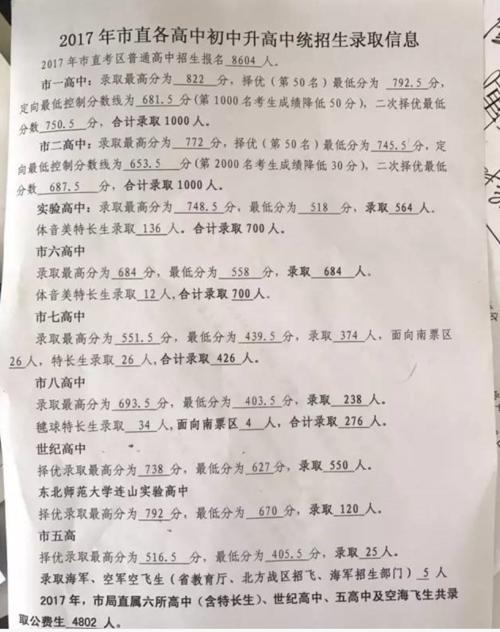 2017年市直各高中初中升高中统招生录取信息
2017年市直考区普通高中招生报名 8604 人。
市一高中：录取最高分为 822 分，择优（第50名）最低分为 792.5 分，
定向最低控制分数线为 681.5 分(第1000名考生成绩降低50分)，二次择优最低
分数 750.5 分，合计录取1000人。
市二高中：录取最高分为 772 分，择优（第50名）最低分为 745.5 分，定
向最低控制分数线为 653.5 分(第2000名考生成绩降低30分)，二次择优最低
分数 687.5 分，合计录取1000人。
实验高中：录取最高分为 748.5 分，最低分为 518 分，录取 564 人。
体音美特长生录取 136 人。合计录取700人。
市六高中
录取最高分为 684 分，最低分为 558 分，录取 684 人。
体音美特长生录取 12 人,合计录取700人。
市七高中
录取最高分为 551.5 分，最低分为 439.5 分，录取 374 人，面向南票区
26人，特长生录取 26 人,合计录取 426 人。
市八高中
录取最高分为 693.5 分，最低分为 403.5 分，录取 238 人。
毽球特长生录取 34 人,面向南票区 4 人，合计录取 276 人。
世纪高中
择优录取最高分为 738 分，最低分为 627 分，录取 550 人。
东北师范大学连山实验高中
择优录取最高分为 792 分，最低分为 670 分，录取 120 人。
市五高
择优录取最高分为 516.5 分，最低分为 405.5 分，录取 25 人。
录取海军、空军空飞生（省教育厅、北方战区招飞、海军招生部门） 5 人
2017年，市局直属六所高中（含特长生）、世纪高中、五高中及空海飞生共录
取公费生 4802 人。